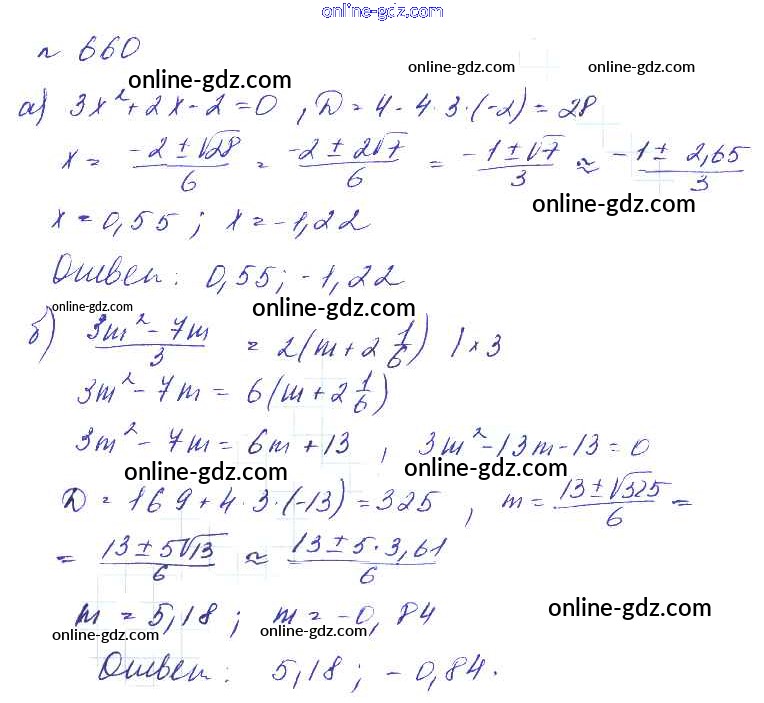 online-gdz.com
n 660
online-gdz.com online-gdz.com online-gdz.com
а) 3x² + 2x - 2 = 0 , D = 4 - 4·3·(-2) = 28
x = (-2 ± √28)/6 = (-2 ± 2√7)/6 = (-1 ± √7)/3 ≈ (-1 ± 2,65)/3
online-gdz.com
x = 0,55 ; x = -1,22
Ответ: 0,55; -1,22
online-gdz.com online-gdz.com online-gdz.com
б) (3m² - 7m)/3 = 2(m + 2 1/6) | × 3
3m² - 7m = 6(m + 2 1/6)
3m² - 7m = 6m + 13 , 3m² - 13m - 13 = 0
online-gdz.com online-gdz.com
D = 169 + 4·3·(-13) = 325 , m = (13 ± √325)/6 =
= (13 ± 5√13)/6 ≈ (13 ± 5·3,61)/6
m = 5,18 ; m = -0,84
online-gdz.com online-gdz.com online-gdz.com
Ответ: 5,18 ; -0,84.